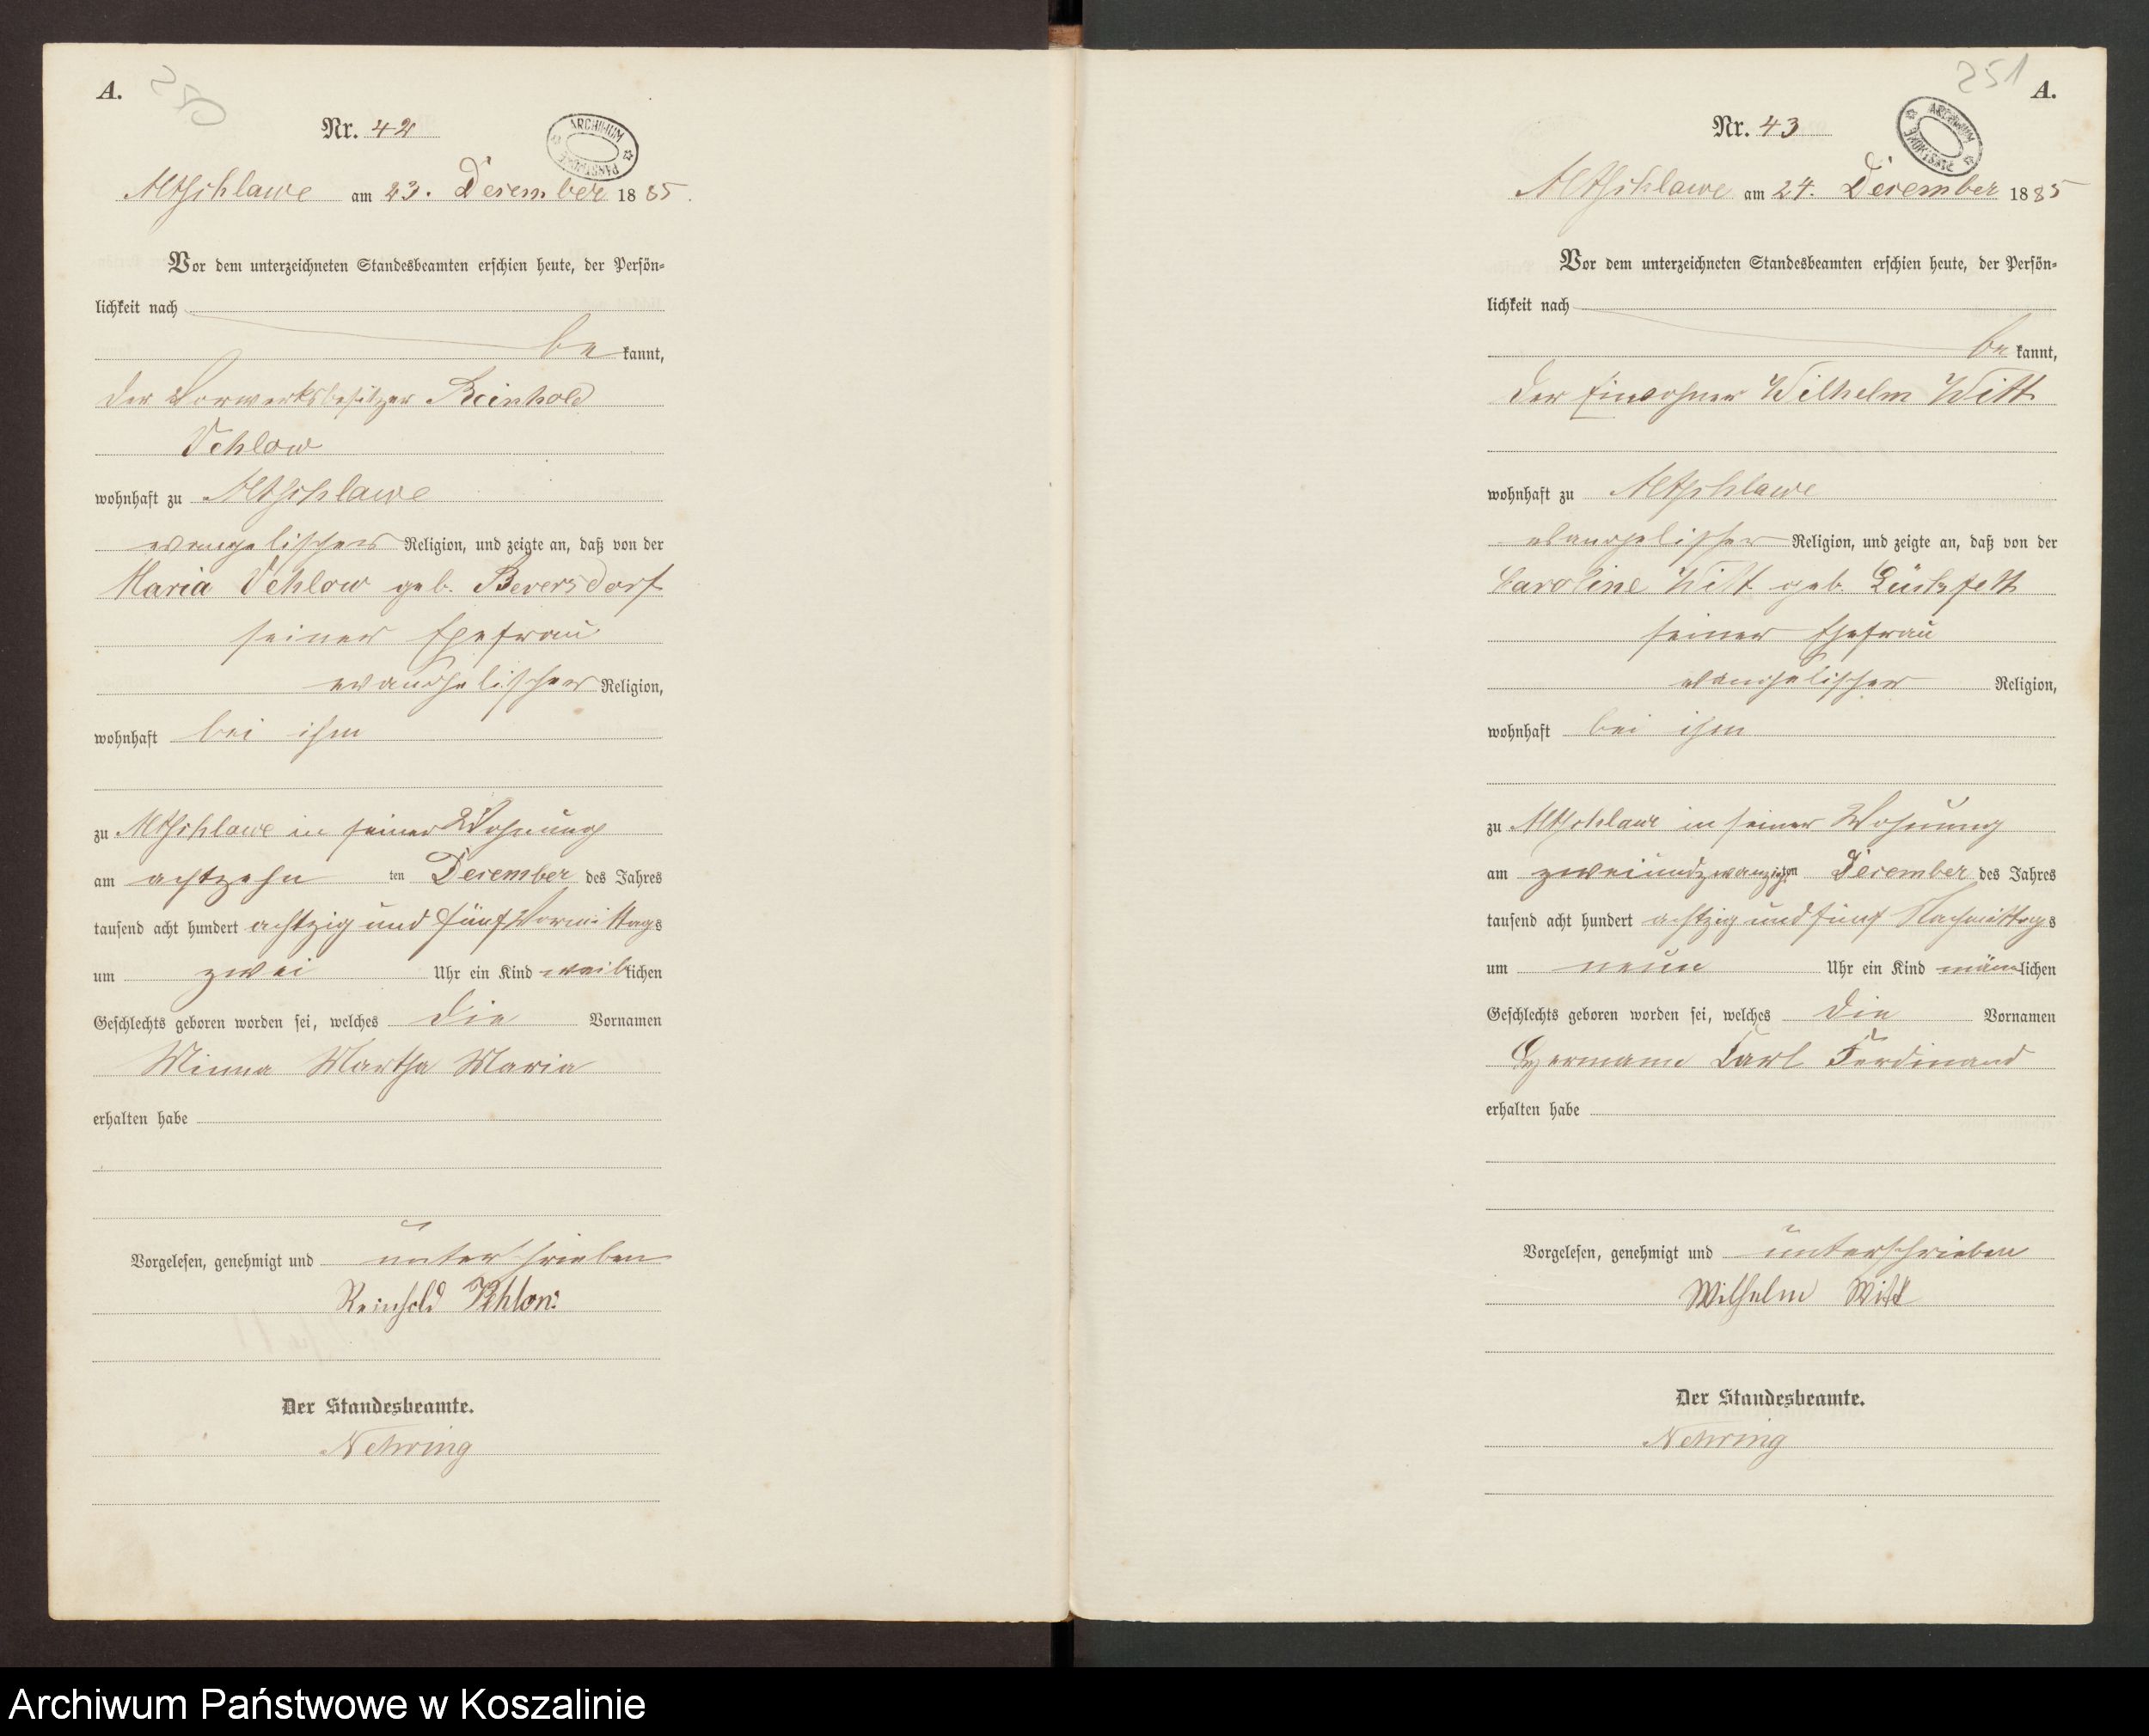 A.
250
Nr. 42
ARCHIWUM PAŃSTWOWE
Altschlawe am 23. December 1885.
Vor dem unterzeichneten Standesbeamten erschien heute, der Persön-
lichkeit nach
be kannt,
der Vorwerksbesitzer Reinhold
Vehlow
wohnhaft zu Altschlawe
evangelischer Religion, und zeigte an, daß von der
Maria Vehlow geb. Beversdorf
seiner Ehefrau
evangelischer Religion,
wohnhaft bei ihm
zu Altschlawe in seiner Wohnung
am achtzehn ten December des Jahres
tausend acht hundert achtzig und fünf Vormittags
um zwei Uhr ein Kind weiblichen
Geschlechts geboren worden sei, welches die Vornamen
Minna Martha Maria
erhalten habe
Vorgelesen, genehmigt und unterschrieben
Reinhold Vehlow.
Der Standesbeamte.
Nehring
251
A.
Nr. 43
ARCHIWUM PAŃSTWOWE
Altschlawe am 24. December 1885
Vor dem unterzeichneten Standesbeamten erschien heute, der Persön-
lichkeit nach
be kannt,
der Einwohner Wilhelm Witt
wohnhaft zu Altschlawe
evangelischer Religion, und zeigte an, daß von der
Caroline Witt geb.
seiner Ehefrau
evangelischer Religion,
wohnhaft bei ihm
zu Altschlawe in seiner Wohnung
am zweiundzwanzigsten December des Jahres
tausend acht hundert achtzig und fünf Nachmittags
um neun Uhr ein Kind männlichen
Geschlechts geboren worden sei, welches die Vornamen
Hermann Carl Ferdinand
erhalten habe
Vorgelesen, genehmigt und unterschrieben
Wilhelm Witt
Der Standesbeamte.
Nehring
Archiwum Państwowe w Koszalinie